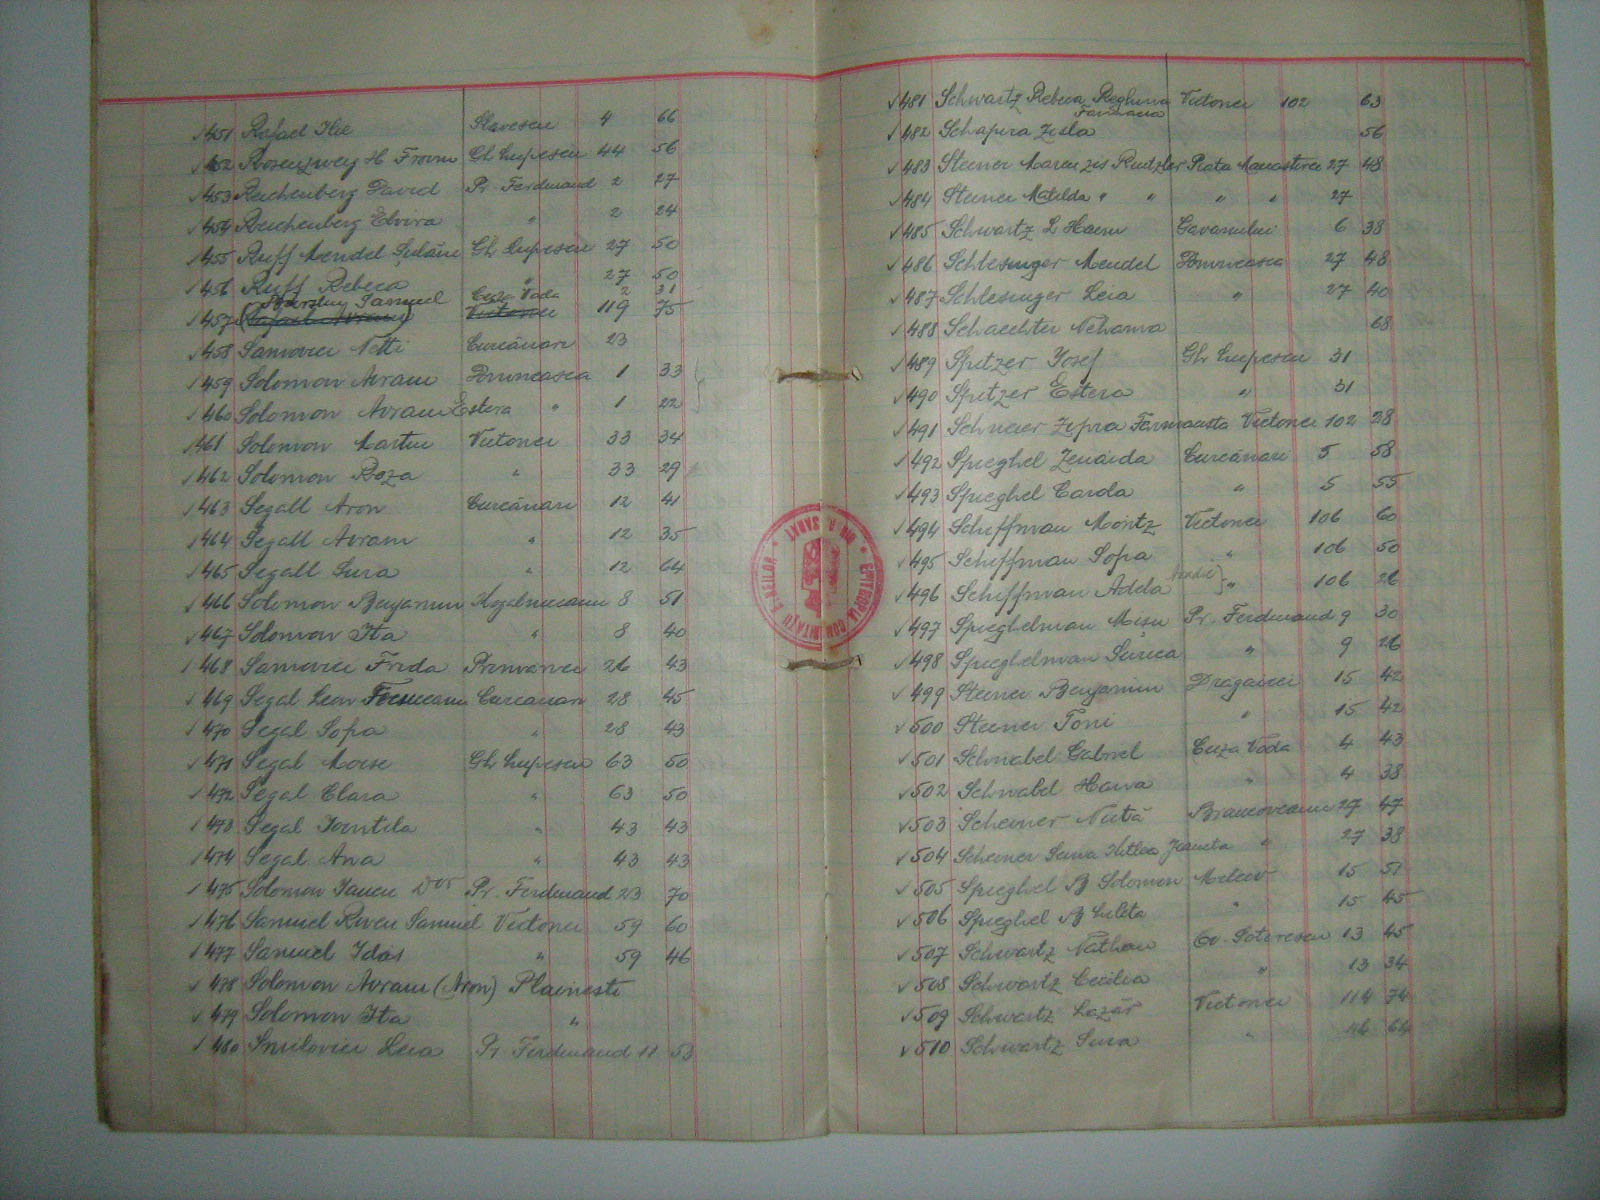 451 Rafael Ilie Slavescu 4 66
452 Rosenzweig H Froim Gh Lupescu 44 56
453 Reichenberg David Pr. Ferdinand 2 27
454 Reichenberg Elvira " 2 24
455 Ruff Mendel Gh Lupescu 27 50
456 Ruff Rebeca " 27 50
Samuel Cuza Voda 2 31
457 Victoriei 119 75
458 Samovici Netti Curcănari 23
459 Solomon Avram 1 33
460 Solomon Avram Estera " 1 22
461 Solomon Martin Victoriei 33 34
462 Solomon Roza " 33 29
463 Segall Aron Curcănari 12 41
464 Segall Avram " 12 35
465 Segall Sura " 12 64
466 Solomon Benjamin Kogalniceanu 8 51
467 Solomon Ita " 8 40
468 Samovici Frida Primariei 26 43
469 Segal Leon Focsineanu Curcanari 28 45
470 Segal Sofia " 28 43
471 Segal Moise Gh Lupescu 63 50
472 Segal Clara " 63 50
473 Segal Iontila " 43 43
474 Segal Ana " 43 43
475 Solomon Iancu Pr. Ferdinand 23 70
476 Samuel Riven Samuel Victoriei 59 60
477 Samuel Idas " 59 46
478 Solomon Avram (Aron) Plainesti
479 Solomon Ita "
480 Smilovici Leia Pr. Ferdinand 11 53
481 Schwartz Rebeca Reghina Victoriei 102 63
Farmacia
482 Schapira Zisla 56
483 Steiner Marcu zis Rintzler Piata Manastirei 27 48
484 Steiner Matilda " " " " 27
485 Schwartz L Haim Gavanului 6 38
486 Schlesinger Mendel 27 48
487 Schlesinger Leia " 27 40
488 Schaechter Nehama 68
489 Spitzer Iosef Gh Lupescu 31
490 Spitzer Estera " 31
491 Schneier Zipra Farmacista Victoriei 102 28
492 Spieghel Zenaida Curcănari 5 58
493 Spieghel Carola " 5 55
494 Schiffman Moritz Victoriei 106 60
495 Schiffman Sofia " 106 50
496 Schiffman Adela " 106 26
497 Spieghelman Misu Pr. Ferdinand 9 30
498 Spieghelman Surica " 9 26
499 Steiner Benjamin Dragaicei 15 42
500 Steiner Toni " 15 42
501 Schnabel Gabriel Cuza Voda 4 43
502 Schnabel Hava " 4 38
503 Scheiner Nută Brancoveanu 27 47
504 Scheiner Sura Janeta " 27 38
505 Spieghel B Solomon Milcov 15 51
506 Spieghel B Luleta " 15 45
507 Schwartz Nathan Gr. Soterescu 13 45
508 Schwartz Cecilia " 13 34
509 Schwartz Lazăr Victoriei 114 74
510 Schwartz Sura " 64
EPITROPIA COMUNITATII EVREILOR
DIN R. SARAT